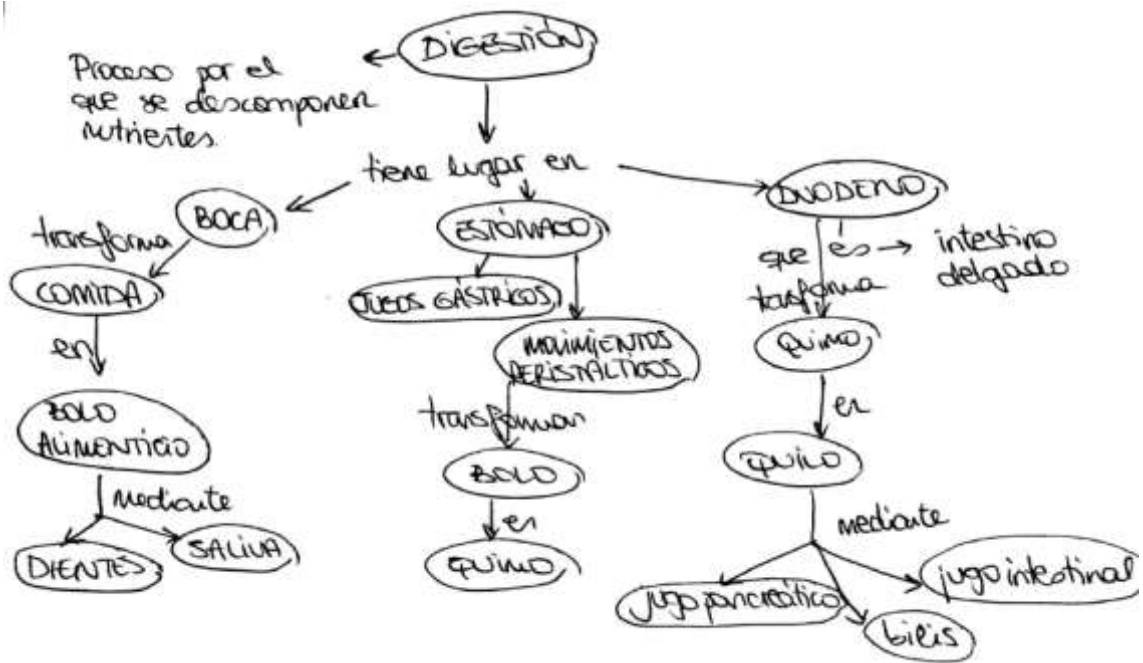 DIGESTIÓN
Proceso por el
que se descomponen
nutrientes.
tiene lugar en
BOCA
transforma
COMIDA
en
BOLO
ALIMENTICIO
mediante
DIENTES
SALIVA
ESTÓMAGO
JUGOS GÁSTRICOS
MOVIMIENTOS
PERISTÁLTICOS
transforman
BOLO
en
QUIMO
DUODENO
que es → intestino
delgado
trasforma
QUIMO
en
QUILO
mediante
jugo pancreático
bilis
jugo intestinal